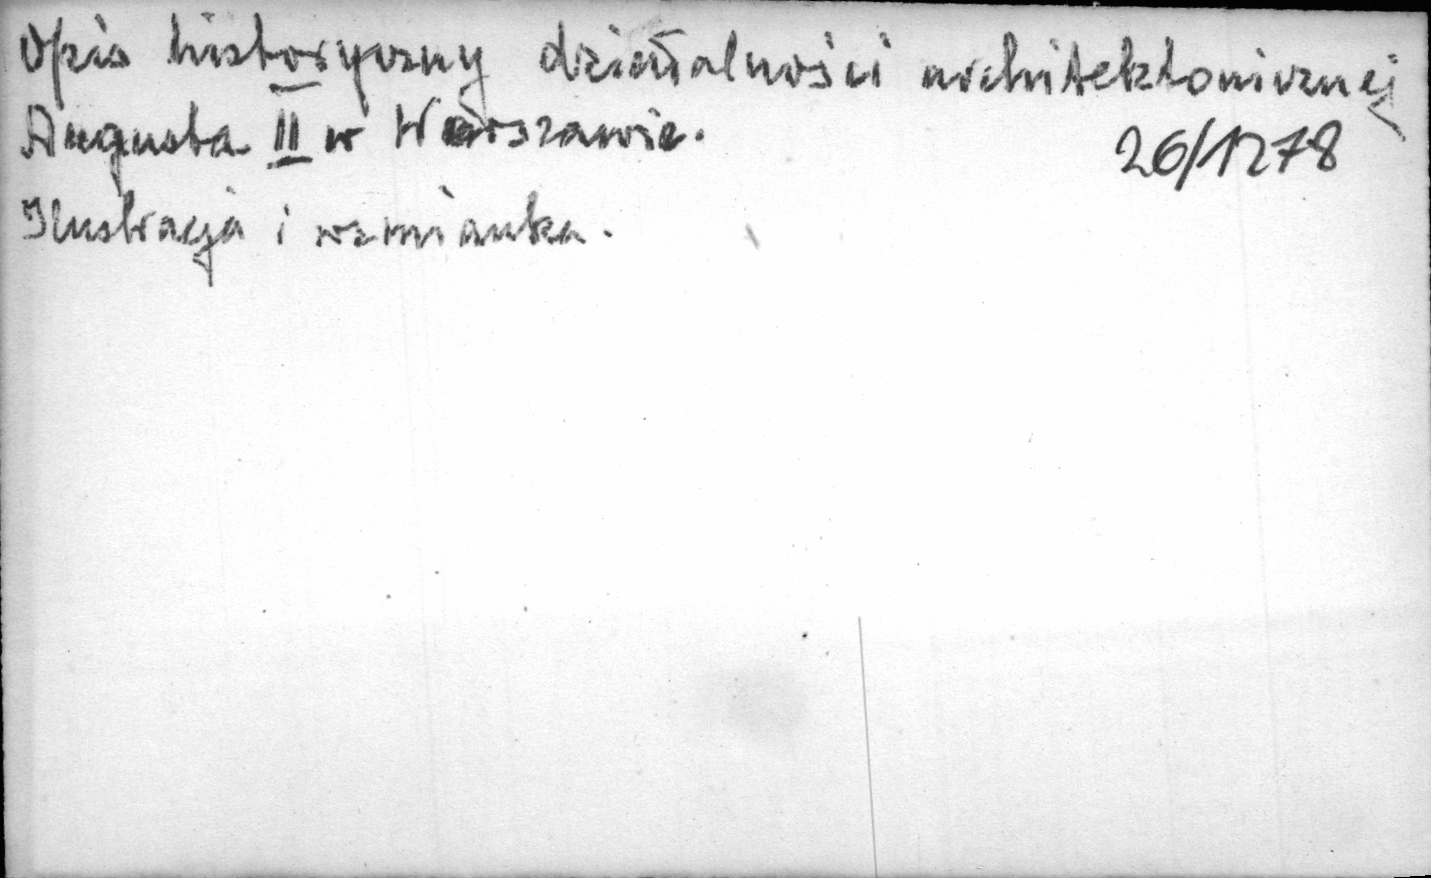 Opis historyczny działalności architektonicznej
Augusta II w Warszawie.
26/1278
Ilustracja i wzmianka.